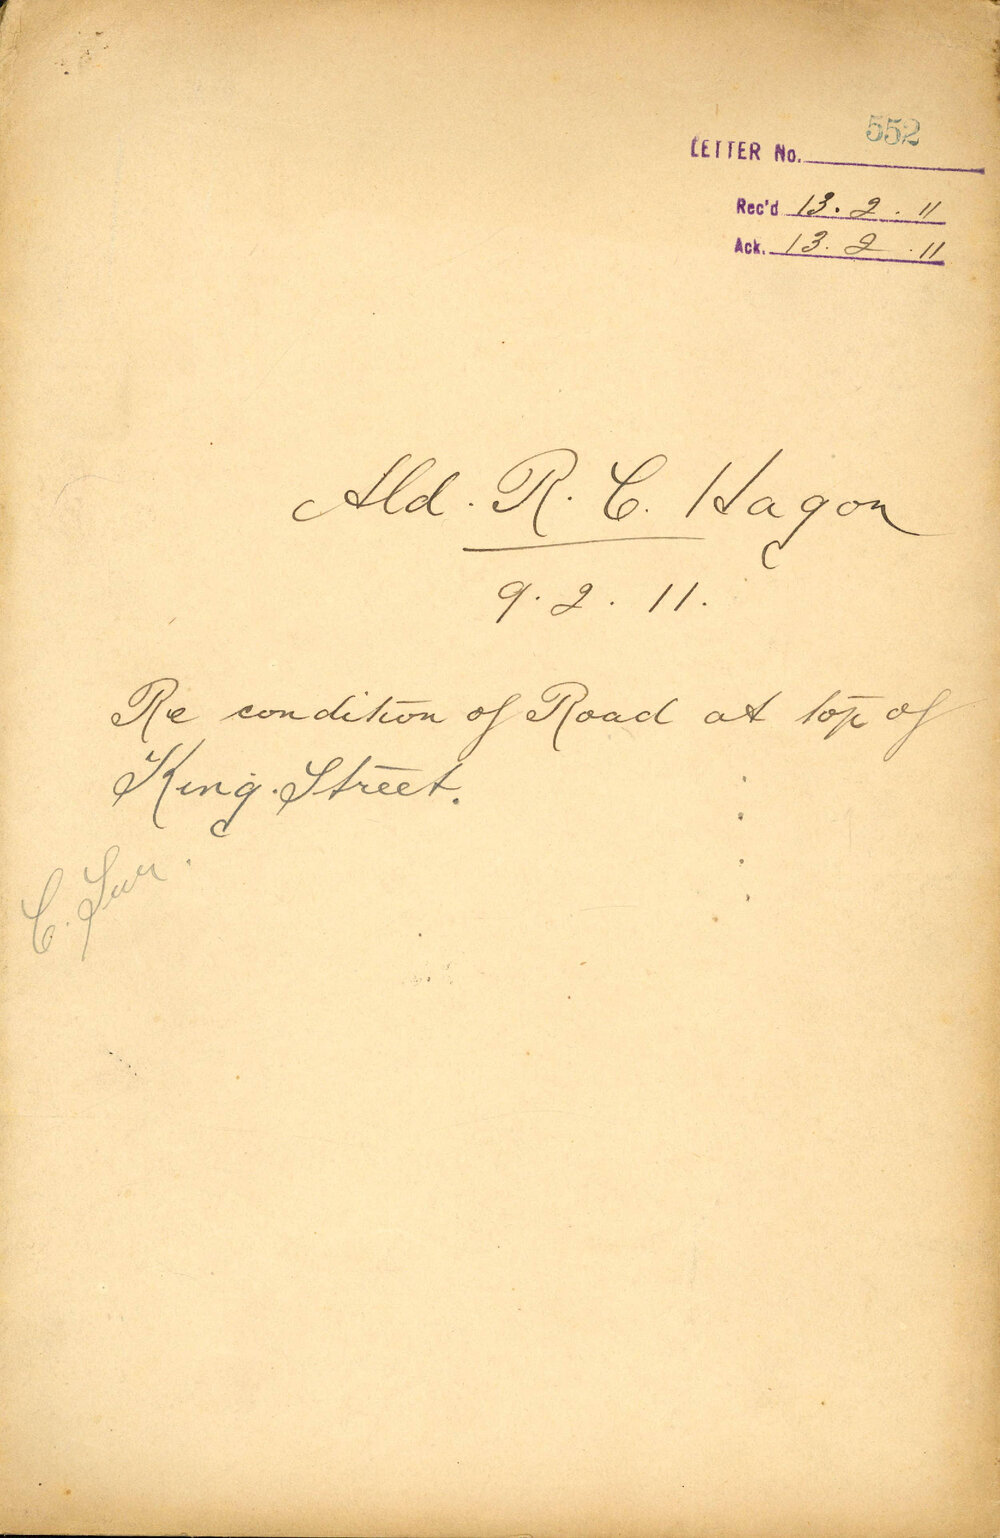 552
LETTER No.
Rec'd 13.2.11
Ack. 13.2.11
Ald. R. C. Hagon
9.2.11.
Re condition of Road at top of
King Street.
C. Sur.